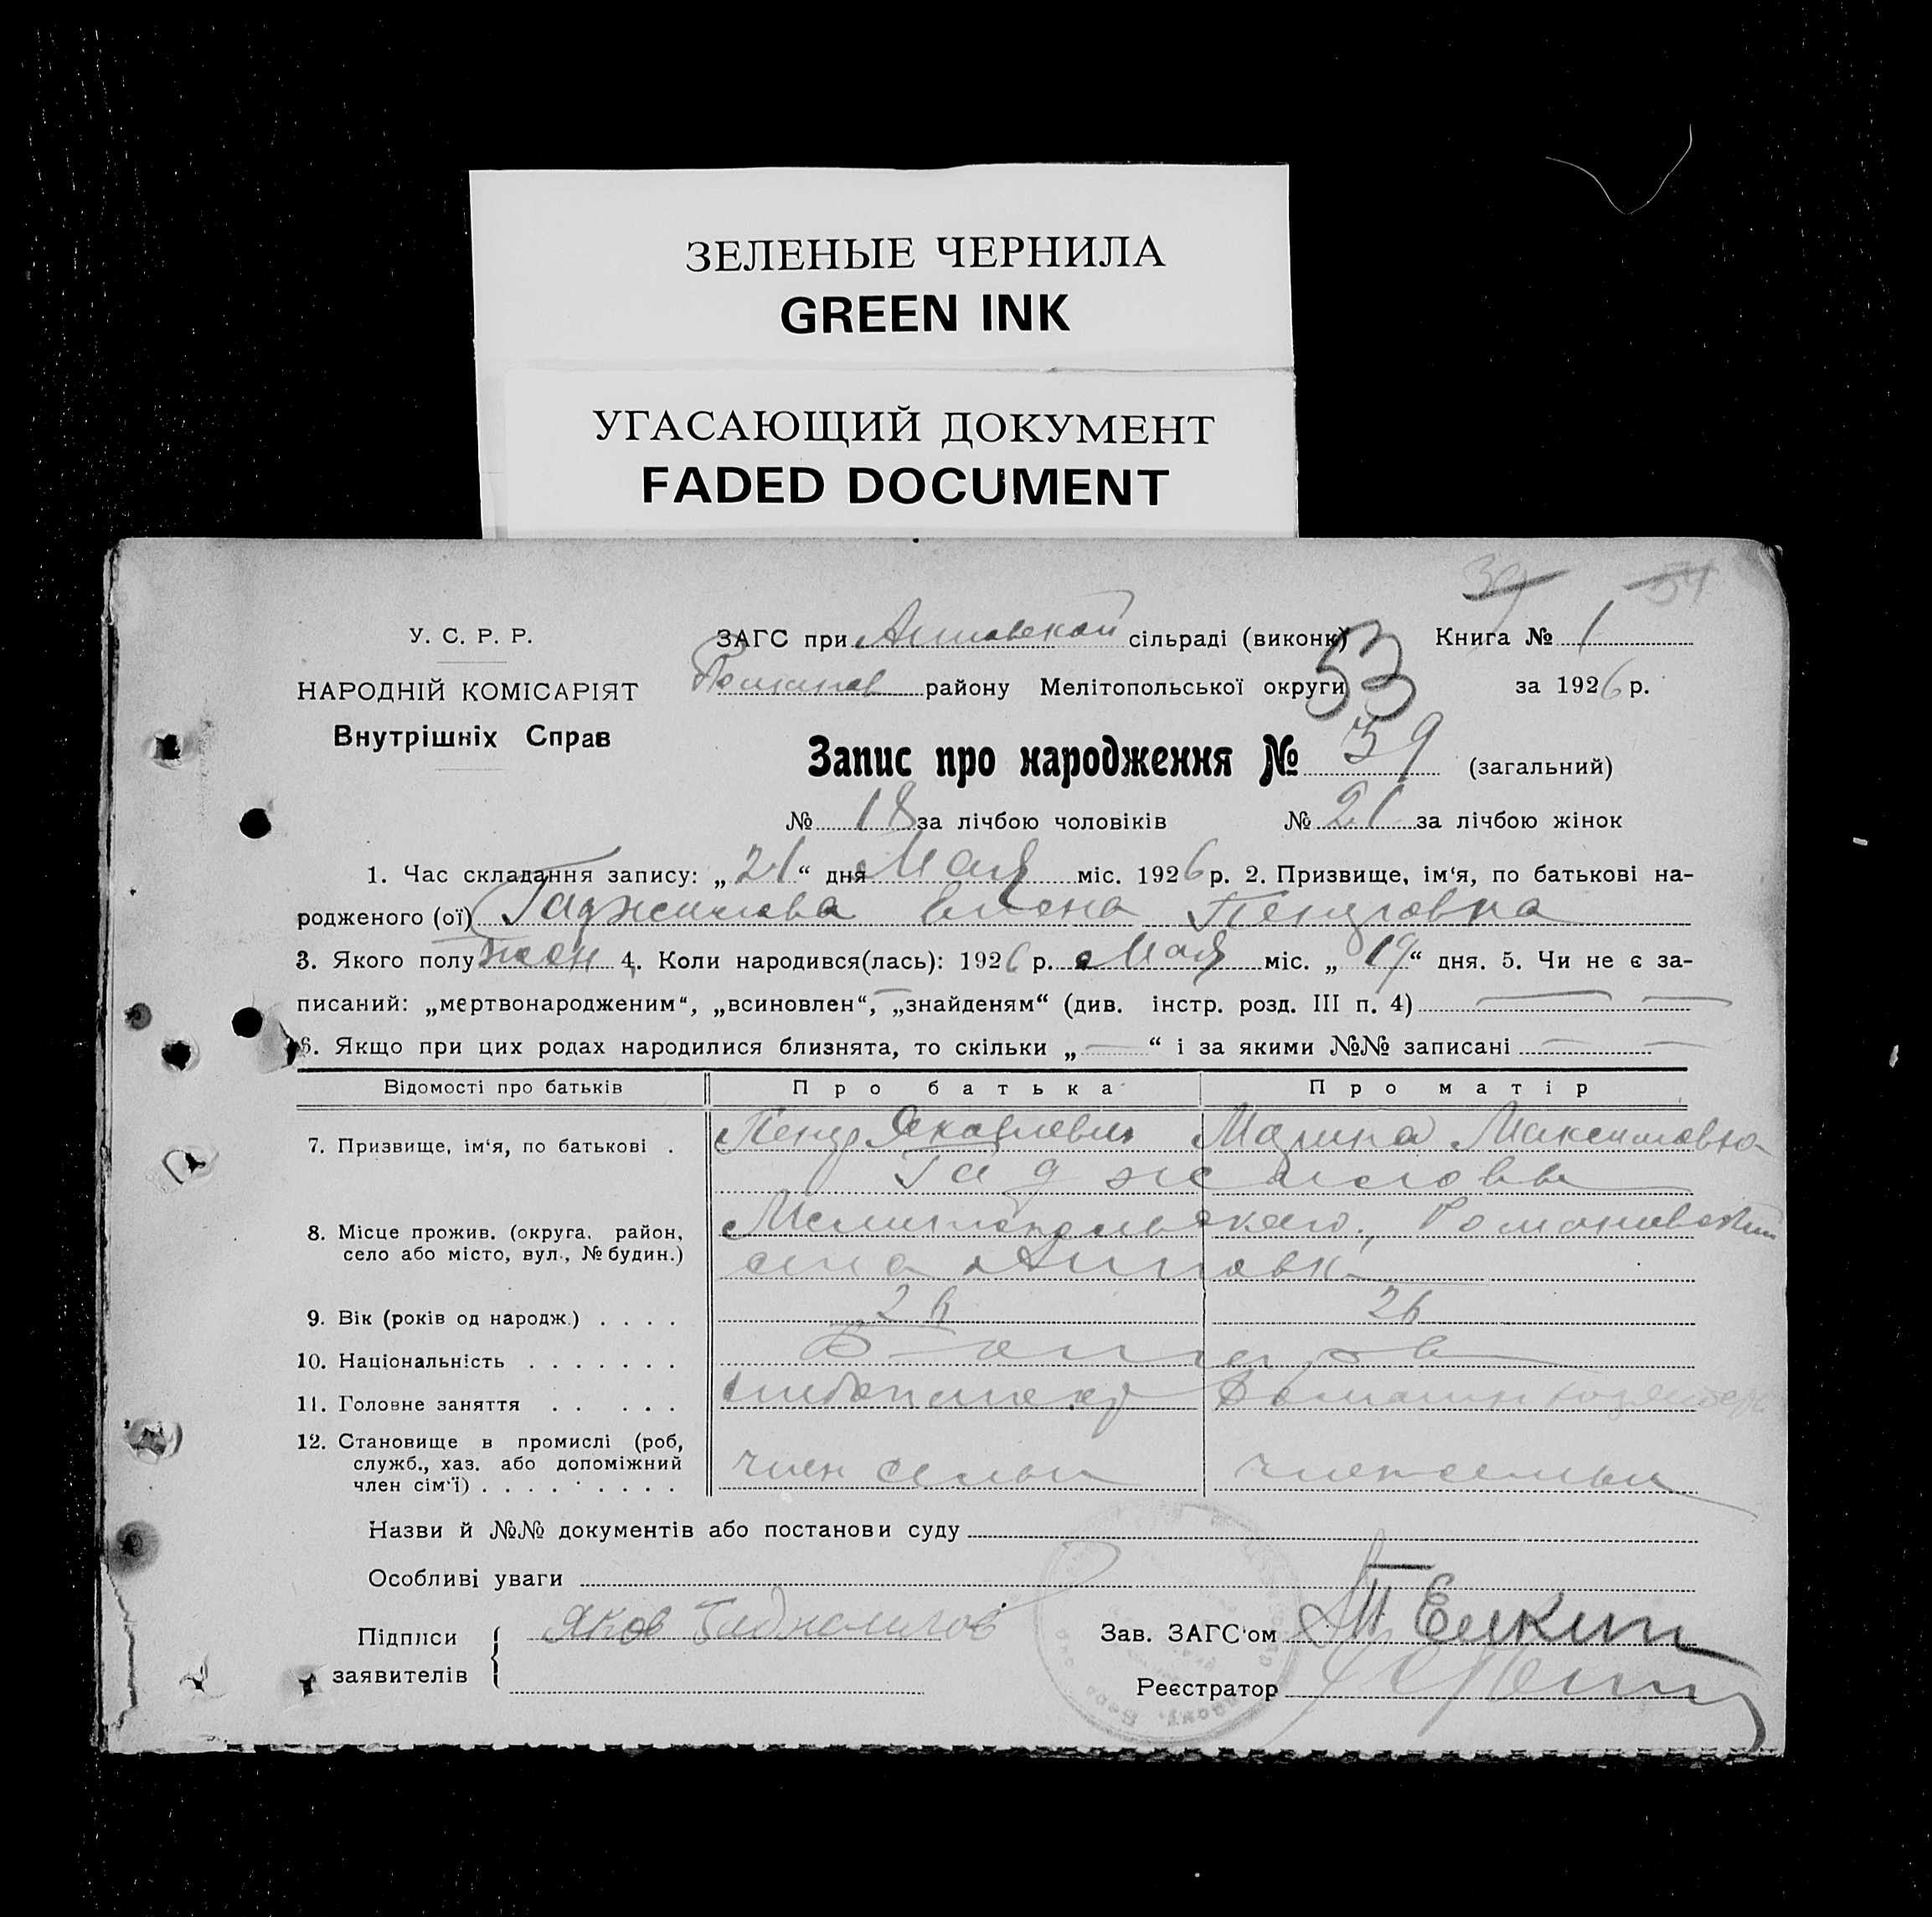 ЗЕЛЕНЫЕ ЧЕРНИЛА
GREEN INK
УГАСАЮЩИЙ ДОКУМЕНТ
FADED DOCUMENT
39 54
У. С. Р. Р. ЗАГС при сільраді (виконк) Книга № 1
53
НАРОДНІЙ КОМІСАРІЯТ Романов району Мелітопольської округи за 1926 р.
Внутрішніх Справ
Запис про народження № 39 (загальний)
№ 18 за лічбою чоловіків № 21 за лічбою жінок
1. Час складання запису: „21“ дня Мая міс. 1926 р. 2. Призвище, ім‘я, по батькові на-
родженого (ої) Гаджилова Елена Петровна
3. Якого полу жен 4. Коли народився(лась): 1926 р. Мая міс. „19“ дня. 5. Чи не є за-
писаний: „мертвонародженим“, „всиновлен“, „знайденям“ (див. інстр. розд. III п. 4)
6. Якщо при цих родах народилися близнята, то скільки „—“ і за якими №№ записані
Відомості про батьків Про батька Про матір
7. Призвище, ім‘я, по батькові . Петр Яковлевич Марина Максимовна
Гаджиловы
8. Місце прожив. (округа, район, Мелитопольского, Романовский
село або місто, вул., № будин.) села
9. Вік (років од народж.) . . . . 26 26
10. Національність . . . . . . . Болгаров
11. Головне заняття . . . . . хлебопашец Домашн хозяйство
12. Становище в промислі (роб,
служб., хаз. або допоміжний член семьи член семьи
член сім‘ї) . . . . . . . . .
Назви й №№ документів або постанови суду
Особливі уваги
Підписи Яков Гаджилов Зав. ЗАГС‘ом
заявителів Реєстратор